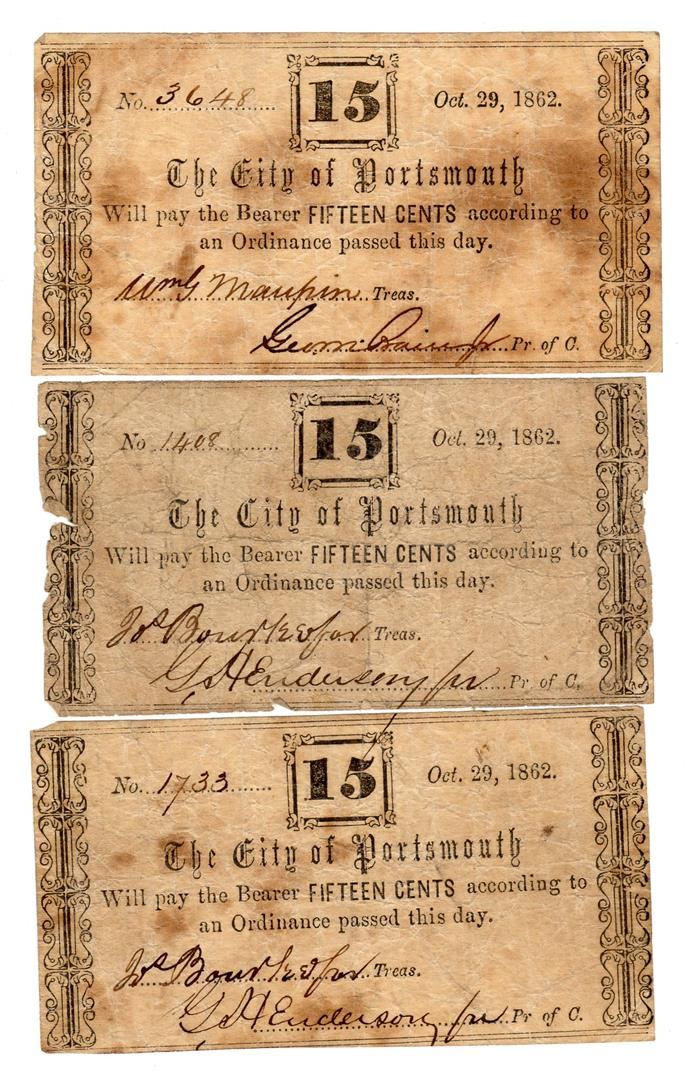 No. 3648 15 Oct. 29, 1862.
The City of Portsmouth
Will pay the Bearer FIFTEEN CENTS according to
an Ordinance passed this day.
Wm G Maupin Treas.
Geo m: Jr Pr. of C.
No 1408 15 Oct. 29, 1862.
The City of Portsmouth
Will pay the Bearer FIFTEEN CENTS according to
an Ordinance passed this day.
Bourke for Treas.
G Henderson, for Pr of C,
No. 1733 15 Oct. 29, 1862.
The City of Portsmouth
Will pay the Bearer FIFTEEN CENTS according to
an Ordinance passed this day.
Bourke for Treas.
G Henderson, for Pr of C.